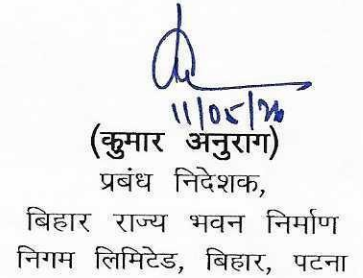 11/05/26
(कुमार अनुराग)
प्रबंध निदेशक,
बिहार राज्य भवन निर्माण
निगम लिमिटेड, बिहार, पटना